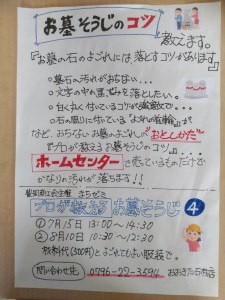 お墓そうじのコツ
教えます。
『お墓の石のよごれには、落とすコツがあります』
・墓石の汚れがおちない...
・文字の中の黒ずみを落としたい。
・白く丸く付いているコケが
・石の周りに付いている
など、おちないお墓のよごれの“おとしかた”
プロが教えるお墓そうじのコツ
ホームセンターで売っているものだけで
かなりの汚れが落ちます!!
主催 まちゼミ
プロが教えるお墓そうじ 4
①7月15日 13:00〜14:30
②8月10日 10:30〜12:30
教科代(500円)とよごれてもよい服装で。
問い合わせ先 0796-22-3591 おおきた石材店